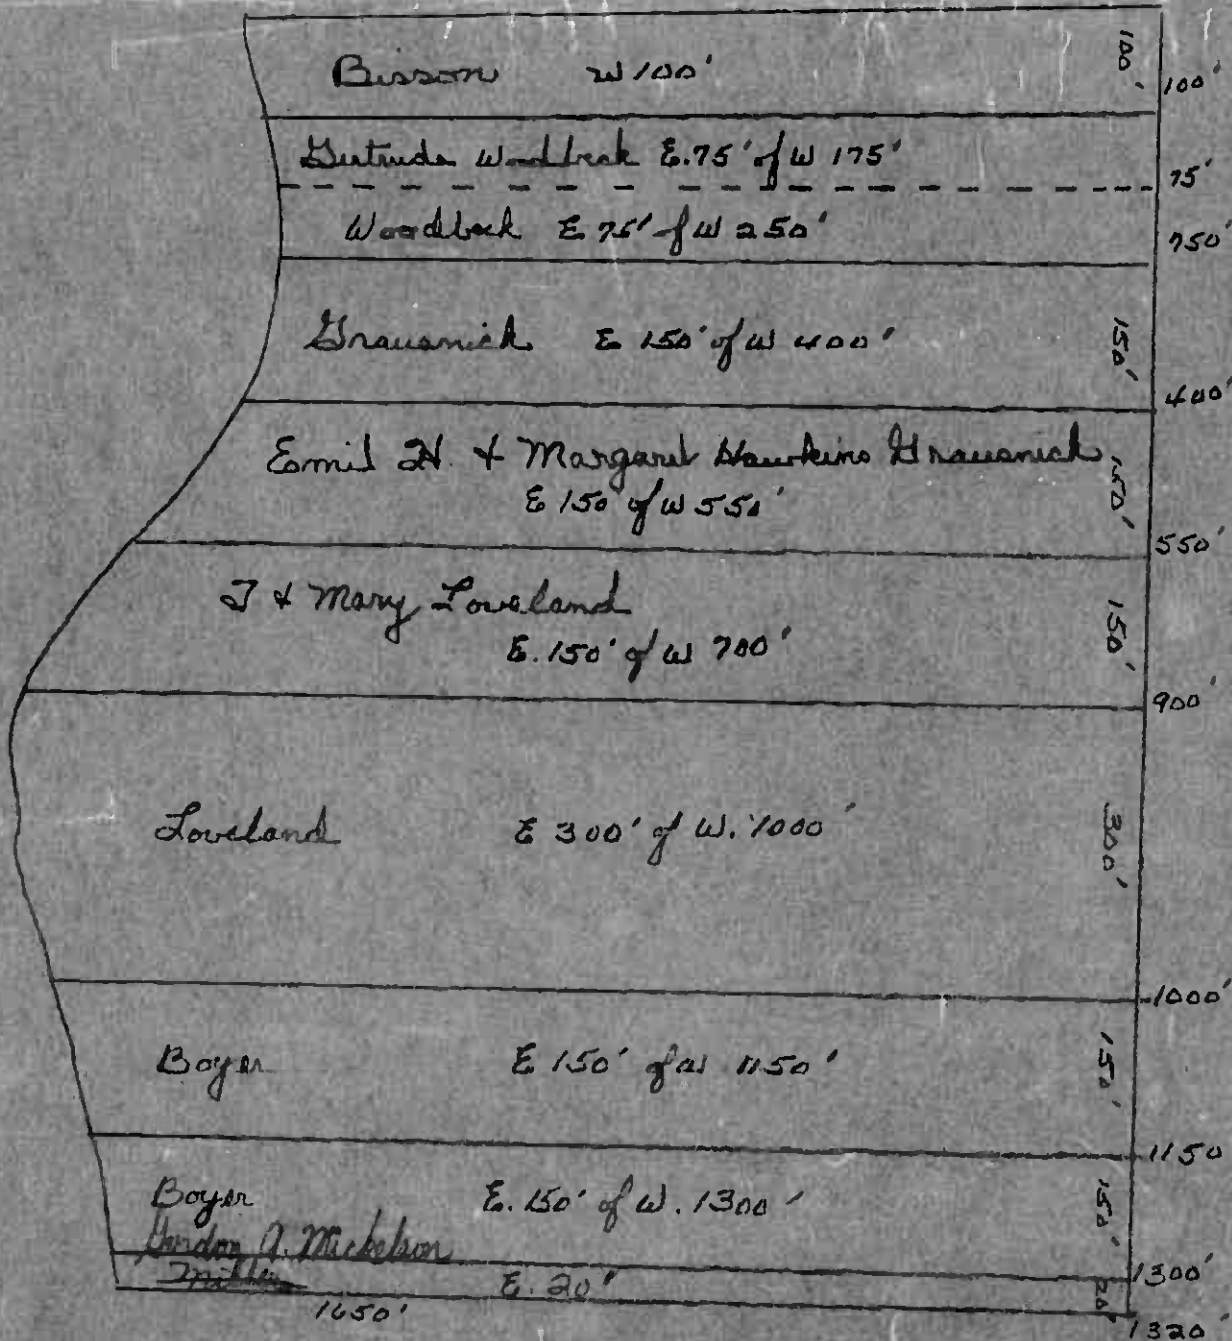 Bisson W 100' 100' 100'
Gertrude Woodbeck E. 75' of W 175' 75'
Woodbeck E 75' of W 250' 750'
Grausnick E 150' of W 400' 150' 400'
Emil H. & Margaret Hawkins Grausnick 150'
E 150' of W 550' 550'
J & Mary Loveland 150'
E. 150' of W 700' 900'
Loveland E 300' of W. 1000' 300' 1000'
Boyer E 150' of W 1150' 150' 1150
Boyer E. 150' of W. 1300' 150'
Gordon A. Mickelson 1300'
Miller E. 20' 20'
1650' 1320